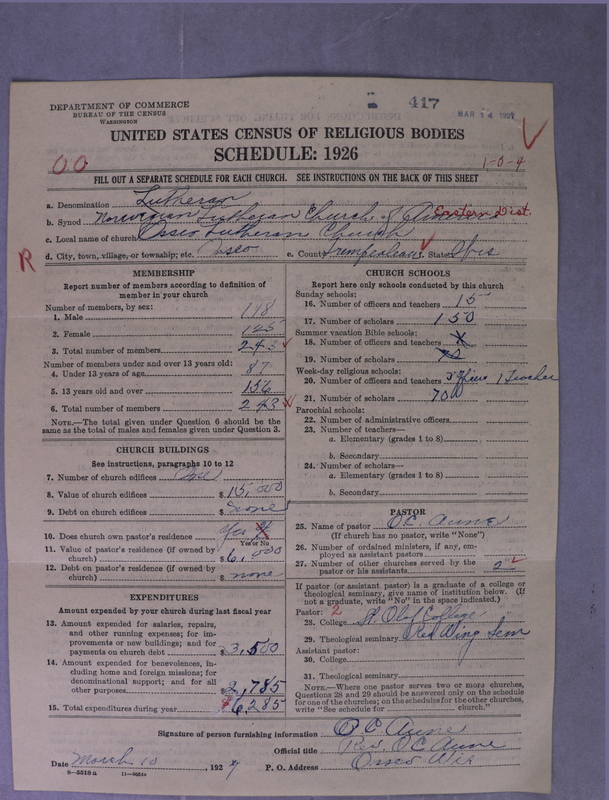 DEPARTMENT OF COMMERCE
BUREAU OF THE CENSUS
WASHINGTON
417
MAR 14 1927
UNITED STATES CENSUS OF RELIGIOUS BODIES
SCHEDULE: 1926
00
1-0-4
FILL OUT A SEPARATE SCHEDULE FOR EACH CHURCH. SEE INSTRUCTIONS ON THE BACK OF THIS SHEET
a. Denomination Lutheran
b. Synod Norwegian Lutheran Church of America Eastern Dist.
c. Local name of church Osseo Lutheran Church
d. City, town, village, or township; etc. Osseo e. County Trempealeau f. State Wis
R
MEMBERSHIP
Report number of members according to definition of
member in your church
Number of members, by sex:
1. Male 118
2. Female 125
3. Total number of members 243
Number of members under and over 13 years old:
4. Under 13 years of age 87
5. 13 years old and over 156
6. Total number of members 243
NOTE.—The total given under Question 6 should be the
same as the total of males and females given under Question 3.
CHURCH BUILDINGS
See instructions, paragraphs 10 to 12
7. Number of church edifices One
8. Value of church edifices $ 15,000
9. Debt on church edifices $ none
10. Does church own pastor's residence Yes
Yes or No
11. Value of pastor's residence (if owned by
church) $ 6,000
12. Debt on pastor's residence (if owned by
church) $ none
EXPENDITURES
Amount expended by your church during last fiscal year
13. Amount expended for salaries, repairs,
and other running expenses; for im-
provements or new buildings; and for
payments on church debt $ 3,500
14. Amount expended for benevolences, in-
cluding home and foreign missions; for
denominational support; and for all
other purposes $ 2,785
15. Total expenditures during year $ 6285
CHURCH SCHOOLS
Report here only schools conducted by this church
Sunday schools:
16. Number of officers and teachers 15
17. Number of scholars 150
Summer vacation Bible schools:
18. Number of officers and teachers
19. Number of scholars
Week-day religious schools:
20. Number of officers and teachers 1 Teacher
21. Number of scholars
Parochial schools:
22. Number of administrative officers
23. Number of teachers—
a. Elementary (grades 1 to 8)
b. Secondary
24. Number of scholars—
a. Elementary (grades 1 to 8)
b. Secondary
PASTOR
25. Name of pastor O.C. Aune
(If church has no pastor, write "None")
26. Number of ordained ministers, if any, em-
ployed as assistant pastors
27. Number of other churches served by the
pastor or his assistants 2
If pastor (or assistant pastor) is a graduate of a college or
theological seminary, give name of institution below. (If
not a graduate, write "No" in the space indicated.)
Pastor: 2
28. College St. Olaf College
29. Theological seminary Red Wing Sem
Assistant pastor:
30. College
31. Theological seminary
NOTE.—Where one pastor serves two or more churches,
Questions 28 and 29 should be answered only on the schedule
for one of the churches; on the schedules for the other churches,
write "See schedule for church."
Signature of person furnishing information O C Aune
Official title Rev. O C Aune
Date March 10, 1927 P. O. Address Osseo Wis
8—5518 a